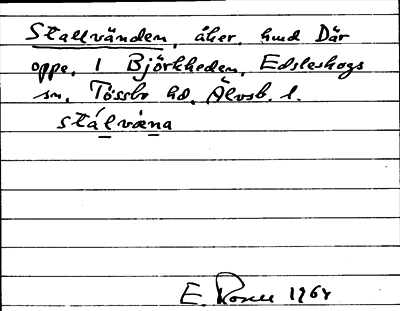 Stallvänden, åker, hmd Där
oppe, 1 Björkheden, Edsleskogs
sn, Tössbo hd, Älvsb. l.
stálvæna
E. Rosell 1964